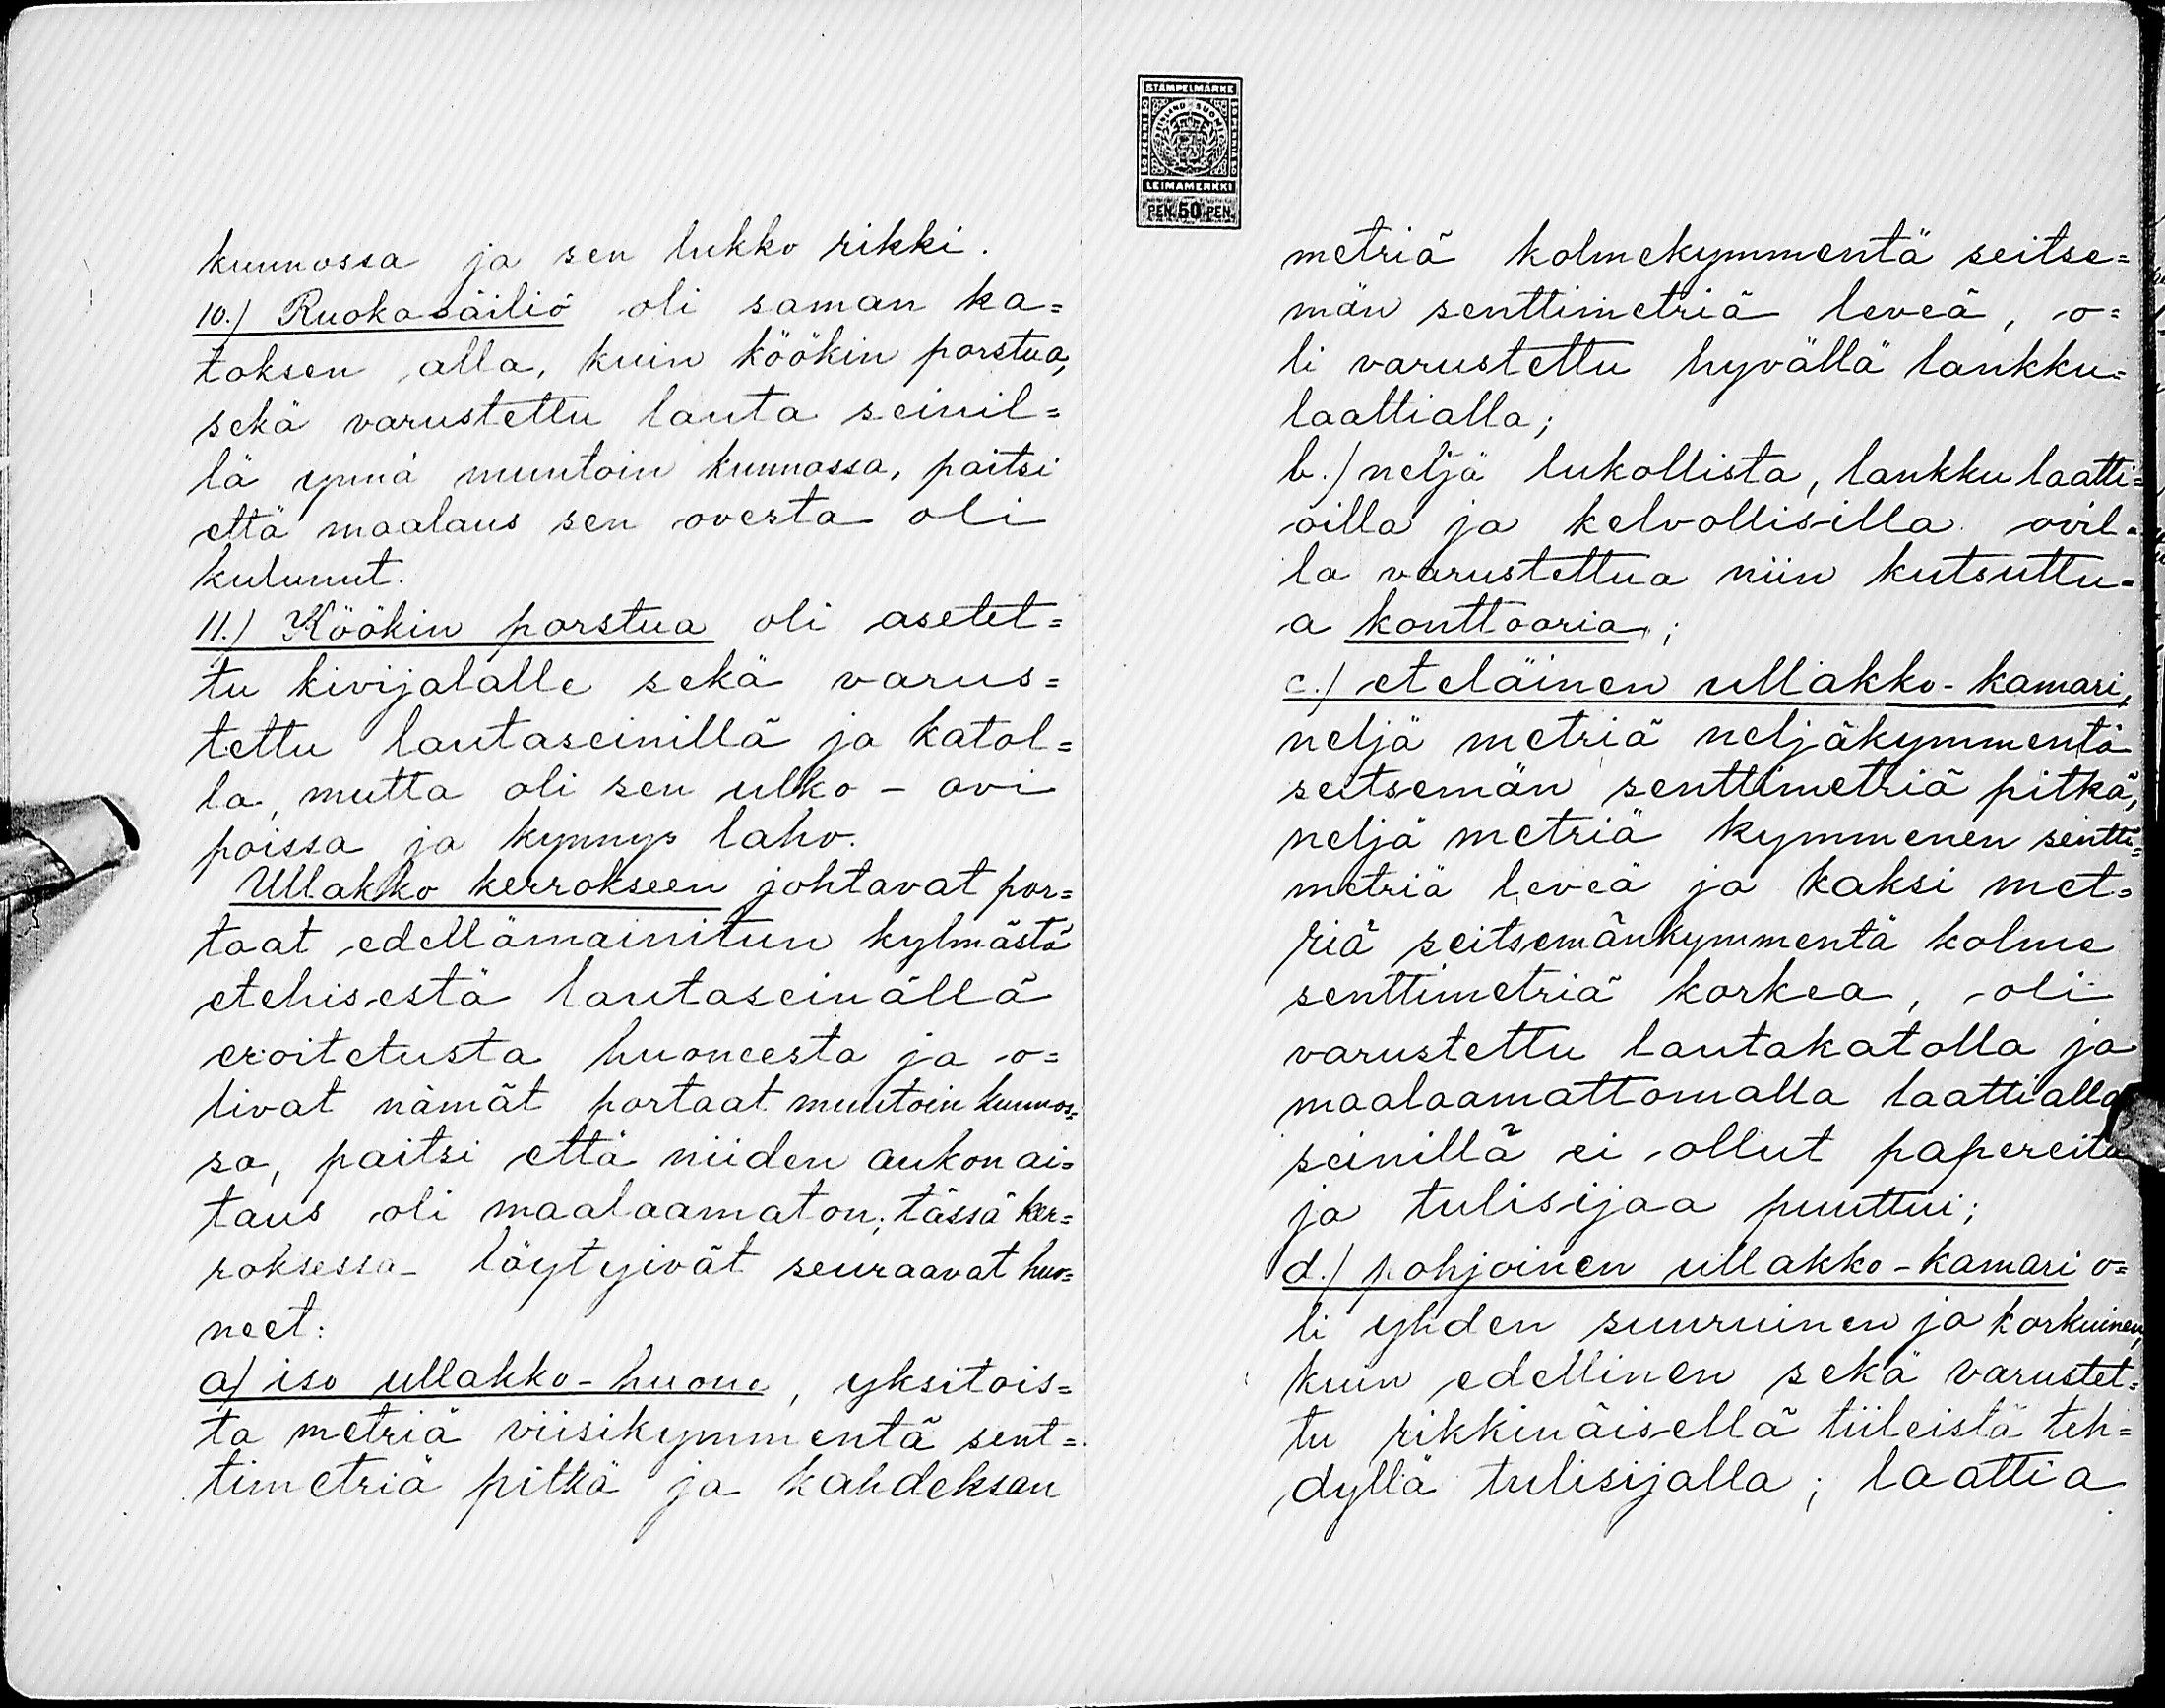 kunnossa ja sen lukko rikki.
10.) Ruokasäiliö oli saman ka=
toksen alla, kuin köökin porstua,
sekä varustettu lauta seinil=
lä ynnä muutoin kunnossa, paitsi
että maalaus sen ovesta oli
kulunut.
11.) Köökin porstua oli asetet=
tu kivijalalle sekä varus=
tettu lautaseinillä ja katol=
la, mutta oli sen ulko-ovi
poissa ja kynnys laho.
Ullakko kerrokseen johtavat por=
taat edellämainitun kylmästä
etehisestä lautaseinällä
eroitetusta huoneesta ja o=
livat nämät portaat muutoin kunnos=
sa, paitsi että niiden aukon ai=
taus oli maalaamaton; tässä ker=
roksessa löytyivät seuraavat huo=
neet:
a) iso ullakko-huone, yksitois=
ta metriä viisikymmentä sent=
timetriä pitkä ja kahdeksan
STÄMPELMÄRKE
FINLAND SUOMI
50 PENNIÄ 50
LEIMAMERKKI
PEN. 50 PEN.
metriä kolmekymmentä seitse=
män senttimetriä leveä, o=
li varustettu hyvällä lankku=
laattialla;
b.) neljä lukollista, lankku laatti=
oilla ja kelvollisilla ovil=
la varustettua niin kutsuttu=
a konttooria;
c.) eteläinen ullakko-kamari,
neljä metriä neljäkymmentä
seitsemän senttimetriä pitkä,
neljä metriä kymmenen sentti=
metriä leveä ja kaksi met=
riä seitsemänkymmentä kolme
senttimetriä korkea, oli
varustettu lautakatolla ja
maalaamattomalla laattialla
seinillä ei ollut papereita
ja tulisijaa puuttui;
d.) pohjoinen ullakko-kamari o=
li yhden suuruinen ja korkuinen,
kuin edellinen sekä varustet=
tu rikkinäisellä tiileistä teh=
dyllä tulisijalla; laattia